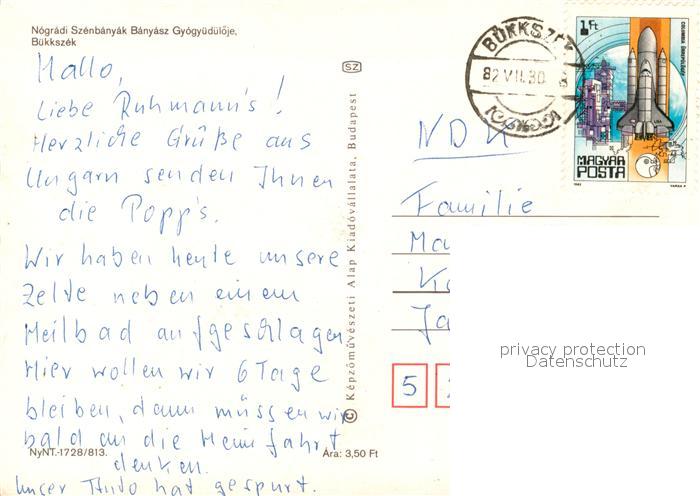 Nógrádi Szénbányák Bányász Gyógyüdülője,
Bükkszék
Hallo,
Liebe Ruhmann's!
Herzliche Grüße aus
Ungarn senden Ihnen
die Popp's.
Wir haben heute unsere
Zelte neben einem
Heilbad aufgeschlagen
Hier wollen wir 6 Tage
bleiben, dann müssen wir
bald an die Heimfahrt
denken.
NyNT.-1728/813.
Ára: 3,50 Ft
Unser Auto hat gespurt.
SZ
© Képzőművészeti Alap Kiadóvállalata, Budapest
BÜKKSZÉK
82 VII. 30
1 Ft
COLUMBIA
MAGYAR
POSTA
1982
VARGA P.
NDK
Familie
Ma
Ja
5
privacy protection
Datenschutz